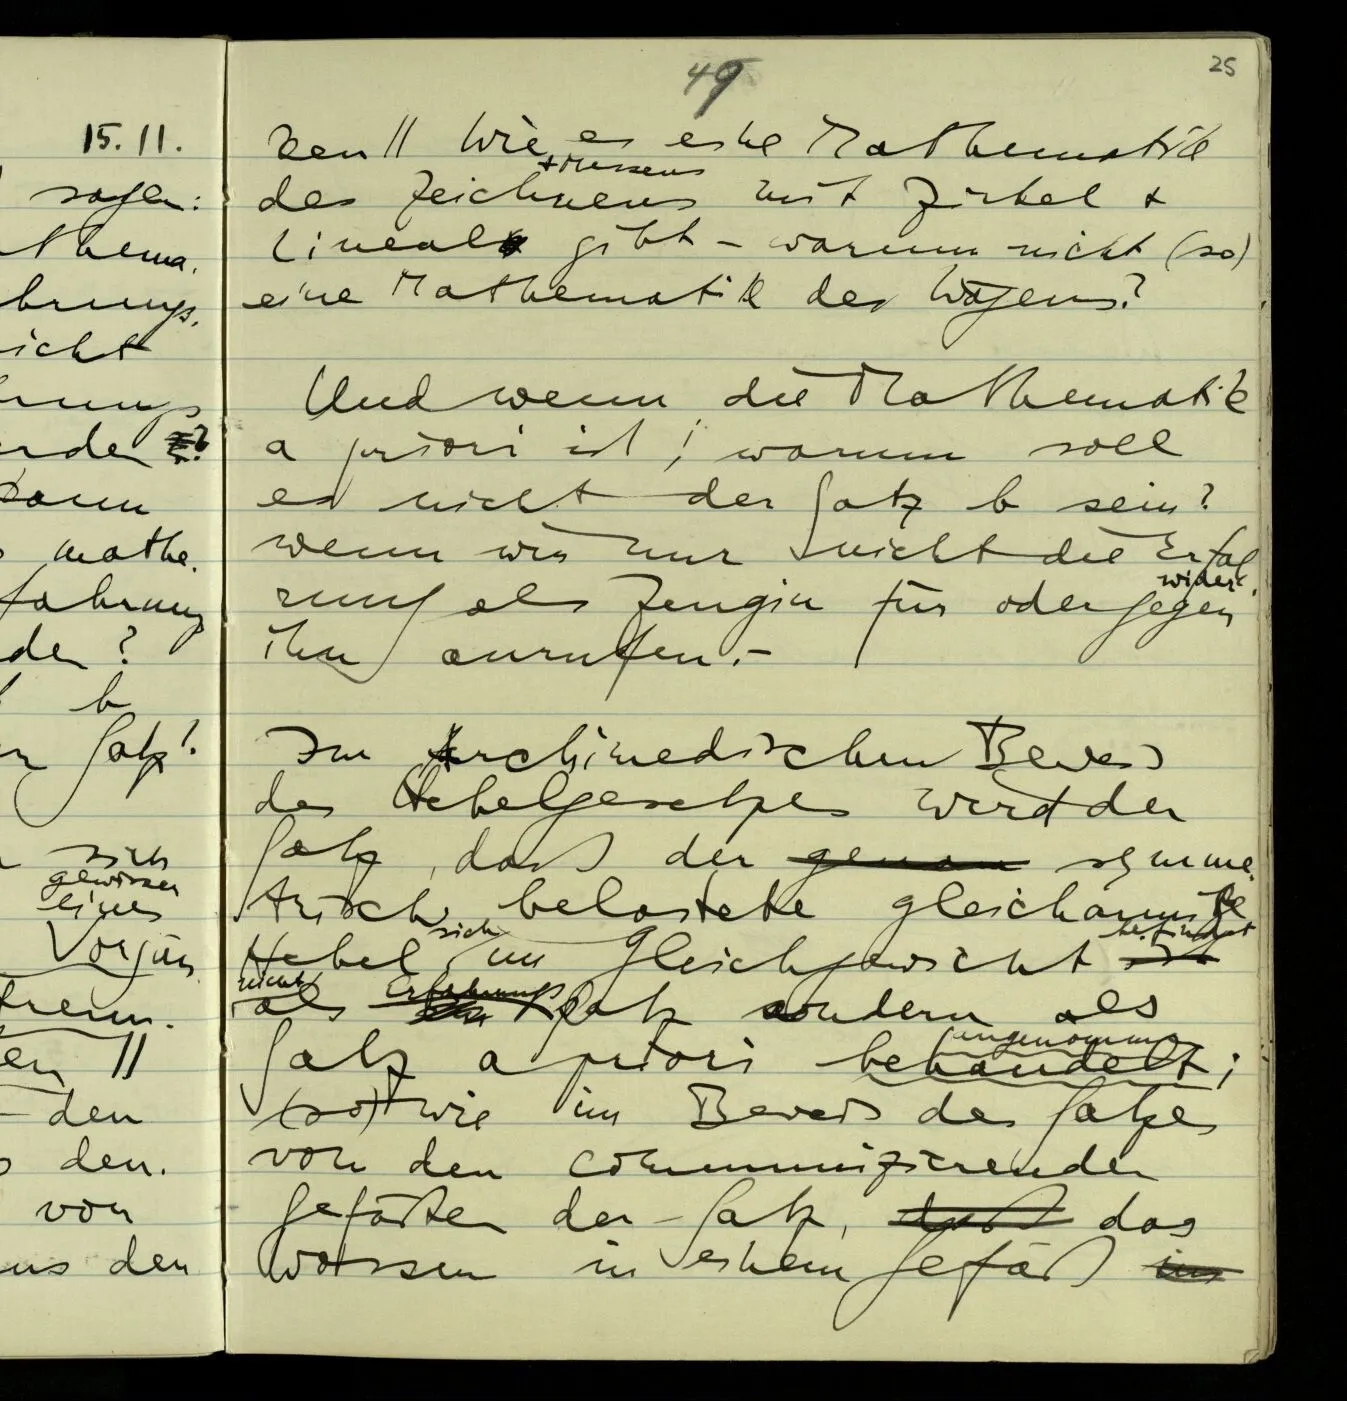 15. 11.
sagen:
thema-
hrungs-
icht
hrungs
rden
kann
mathe-
fahrung
den?
b
Satz!
sich
gewisser
eines
Vorgän-
trenn-
en //
den
den.
von
aus den
49
25
ken // Wie es eine Mathematik
+ Messens
des Zeichnens mit Zirkel +
Lineal gibt – warum nicht (so)
eine Mathematik des Wägens?
Und wenn die Mathematik
a priori ist; warum soll
es nicht der Satz b sein?
wenn wir nur nicht die Erfah
wider.
rung als Zeugin für oder gegen
ihn anrufen.–
Im Archimedischen Beweis
des Hebelgesetzes wird der
Satz, daß der genau symme-
trisch belastete gleicharmige
sich befindet
Hebel im Gleichgewicht ist
nicht Erfahrungs
als Satz sondern als
angenommen
Satz a priori behandelt;
(so) wie im Beweis des Satzes
von den communizierenden
Gefäßen der Satz, daß das
Wasser in einem Gefäß im